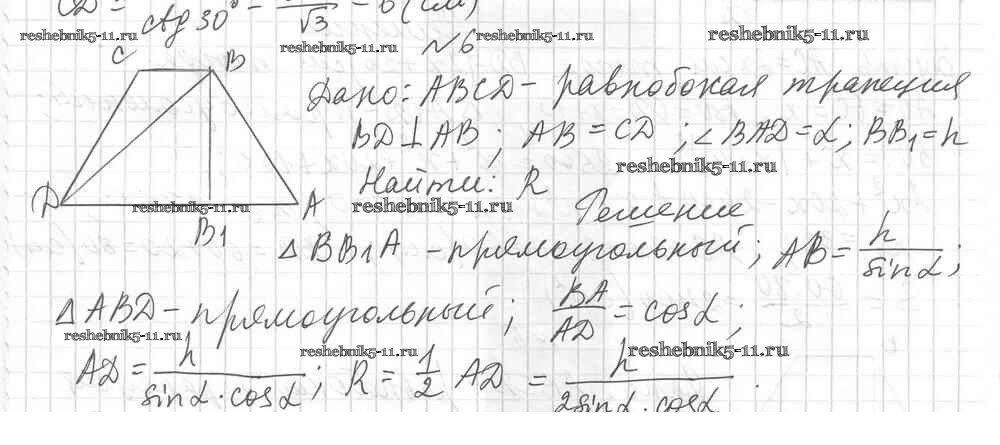 CD = ctg 30° = √3 = 6 (см)
reshebnik5-11.ru reshebnik5-11.ru reshebnik5-11.ru reshebnik5-11.ru
№6
C B
Дано: ABCD - равнобокая трапеция
BD ⊥ AB; AB = CD; ∠BAD = α; BB₁ = h
reshebnik5-11.ru
Найти: R
D A
reshebnik5-11.ru reshebnik5-11.ru
Решение
B₁
△BB₁A - прямоугольный; AB = h/sinα;
△ABD - прямоугольный; BA/AD = cosα;
reshebnik5-11.ru reshebnik5-11.ru reshebnik5-11.ru
AD = h/(sinα·cosα); R = 1/2 AD = h/(2sinα·cosα).